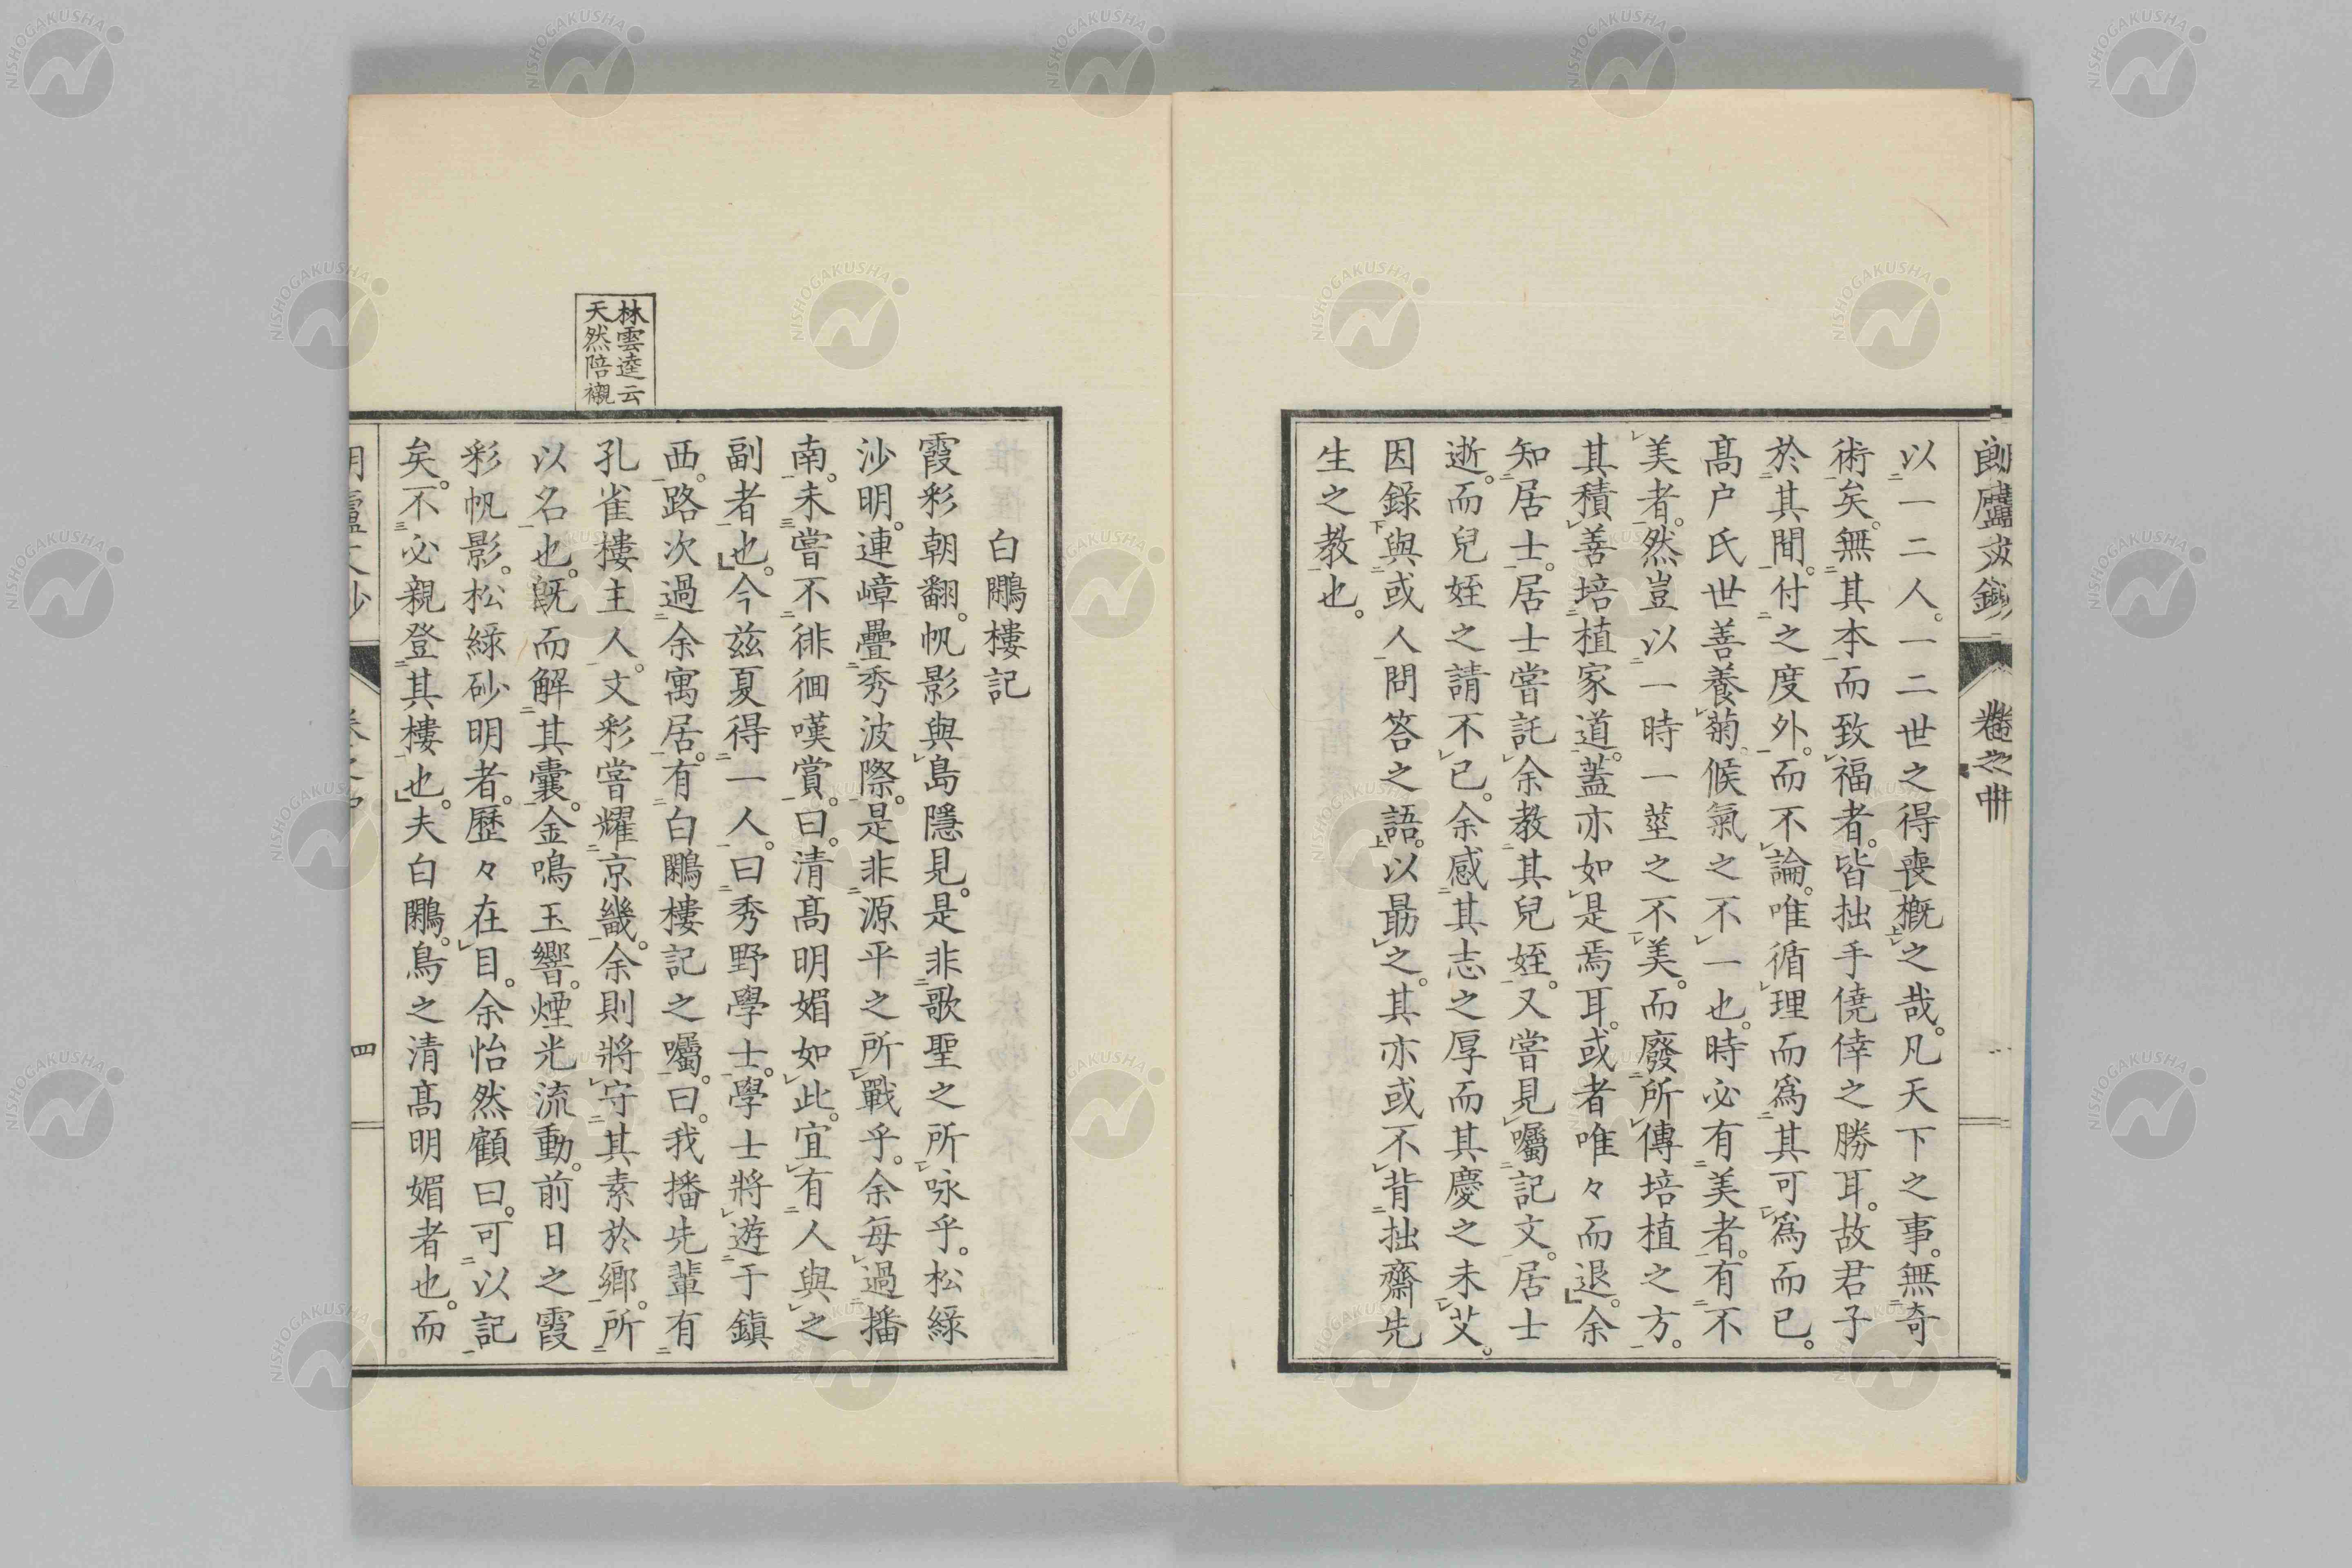 以一二人。一二世之得喪概之哉。凡天下之事。無奇
術矣。無其本而致福者。皆拙手僥倖之勝耳。故君子
於其間。付之度外。而不論。唯循理而爲其可爲而已。
高户氏世善養菊。候氣之不一也。時必有美者。有不
美者。然豈以一時一莖之不美。而廢所傳培植之方。
其積善培植家道。蓋亦如是焉耳。或者唯々而退。余
知居士。居士嘗託余教其兒姪。又嘗見囑記文。居士
逝。而兒姪之請不已。余感其志之厚而其慶之未艾。
因錄與或人問答之語。以勗之。其亦或不背拙齋先
生之教也。
林雲逵云
天然陪襯
白鷴樓記
霞彩朝翻。帆影與島隱見。是非歌聖之所咏乎。松綠
沙明。連嶂疊秀波際。是非源平之所戰乎。余每過播
南。未嘗不徘徊嘆賞。曰。清高明媚如此。宜有人與之
副者也。今茲夏得一人。曰秀野學士。學士將遊于鎮
西。路次過余寓居。有白鷴樓記之囑。曰。我播先輩有
孔雀樓主人。文彩嘗耀京畿。余則將守其素於鄉。所
以名也。旣而解其囊。金鳴玉響。煙光流動。前日之霞
彩帆影。松綠砂明者。歷々在目。余怡然顧曰。可以記
矣。不必親登其樓也。夫白鷴。鳥之清高明媚者也。而
四
NISHOGAKUSHA